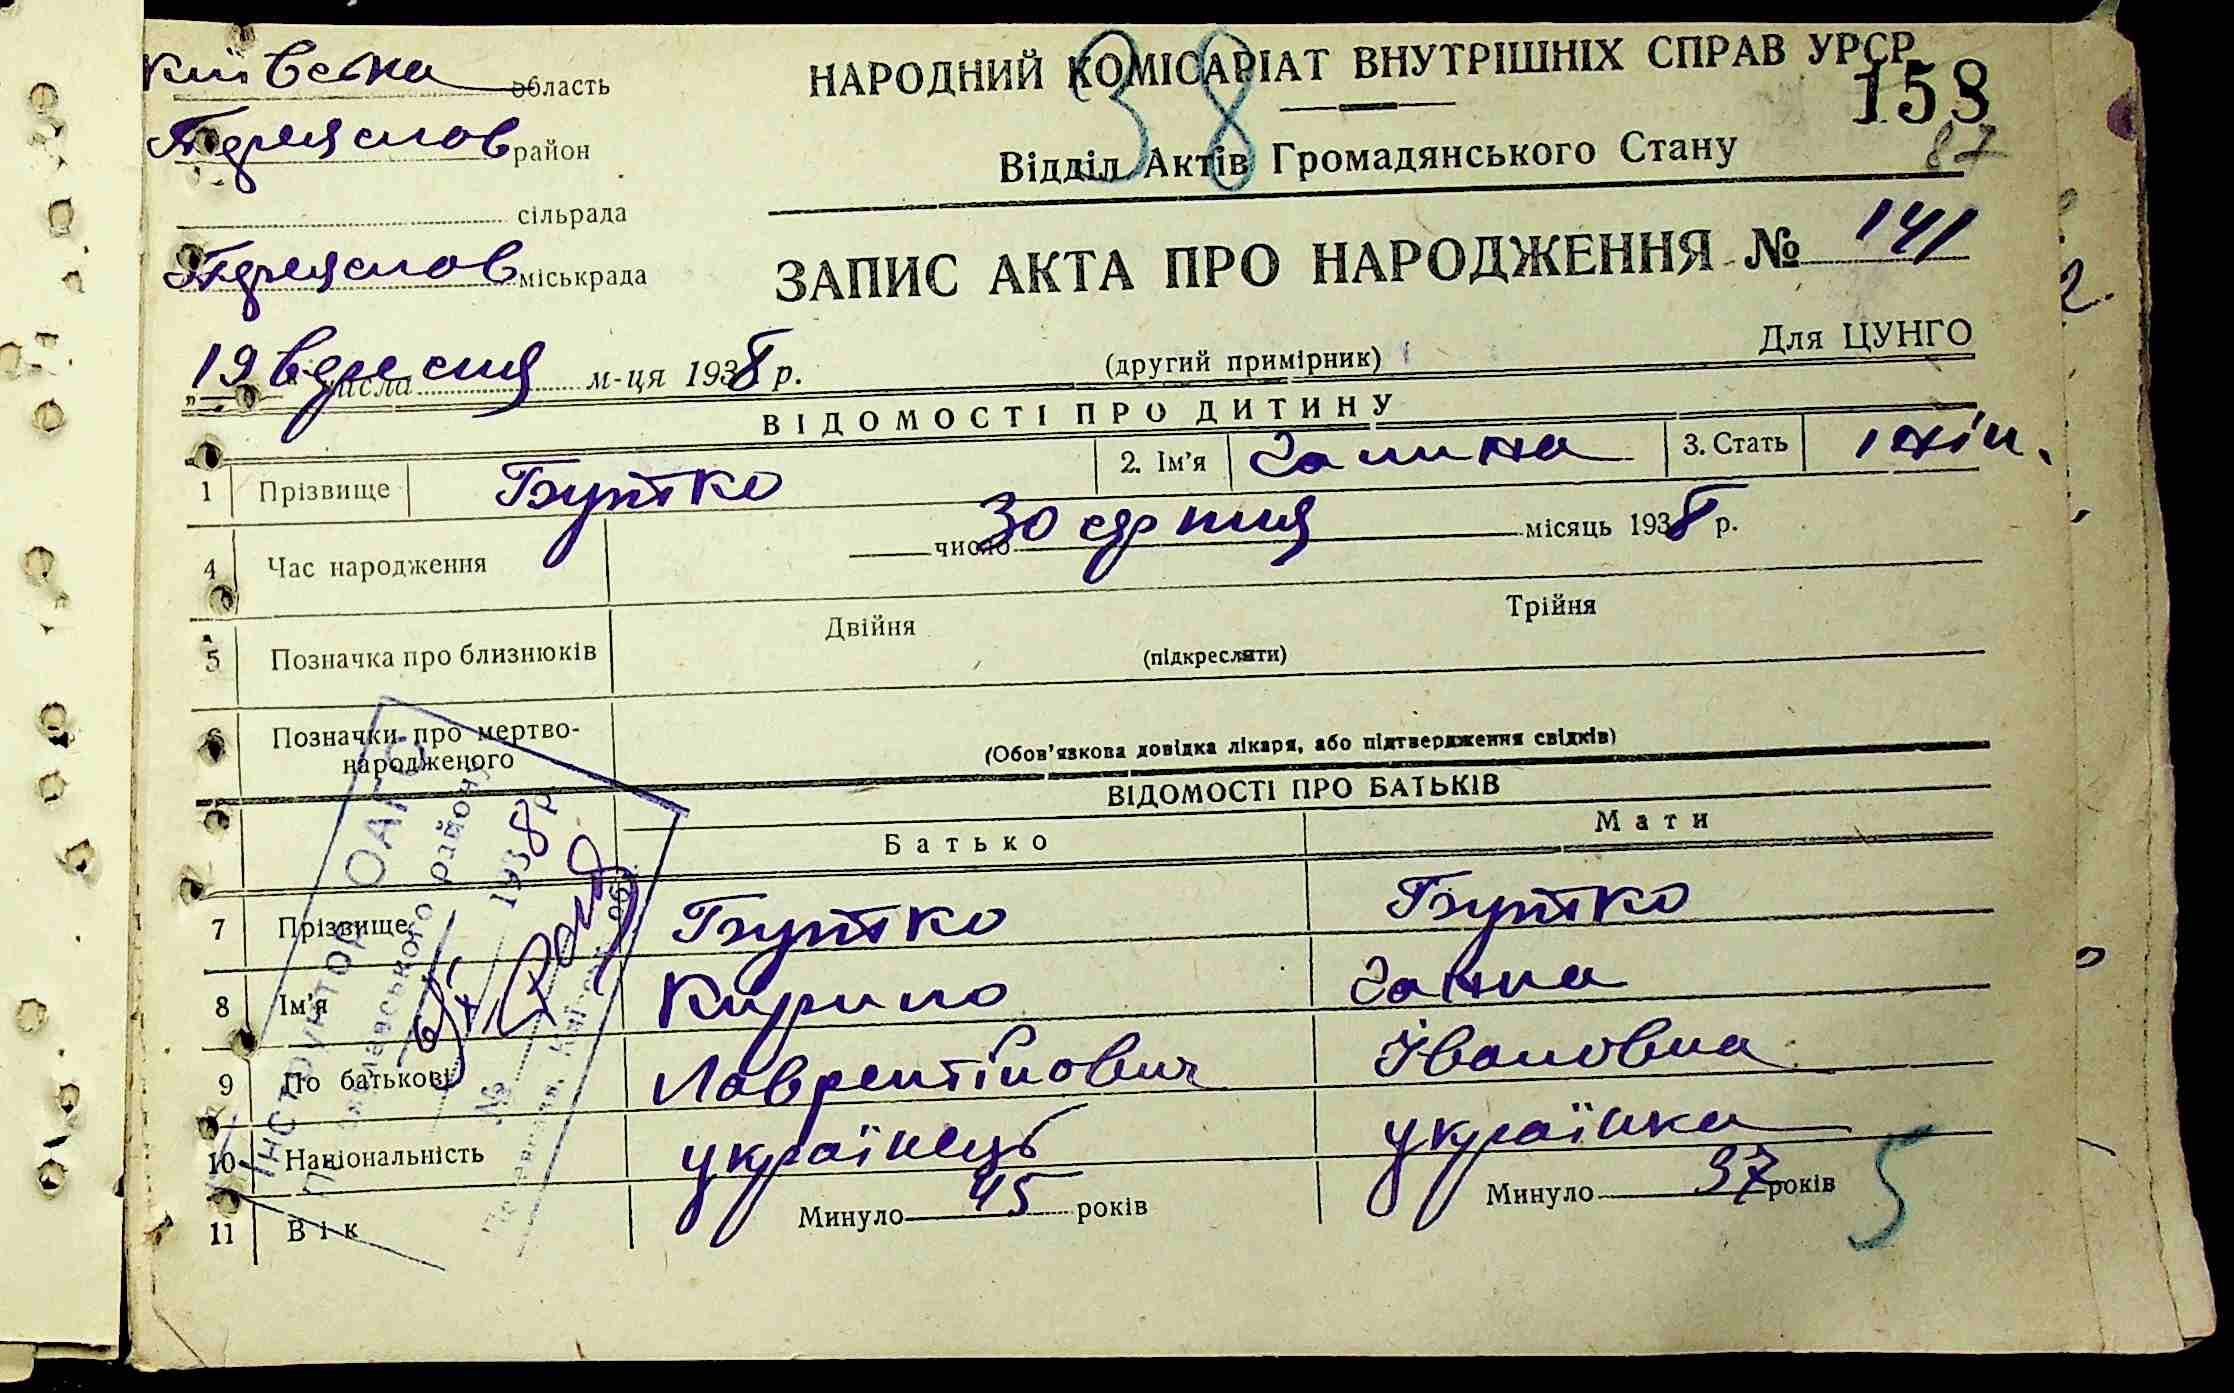 Київська область
НАРОДНИЙ КОМІСАРІАТ ВНУТРІШНІХ СПРАВ УРСР
38
158
87
Переяслов район
Відділ Актів Громадянського Стану
сільрада
Переяслов міськрада
ЗАПИС АКТА ПРО НАРОДЖЕННЯ № 141
„19" числа вересня м-ця 1938 р.
(другий примірник)
Для ЦУНГО
ВІДОМОСТІ ПРО ДИТИНУ
1 Прізвище Бутко 2. Ім'я Галина 3. Стать жін.
4 Час народження число 30 серпня місяць 1938 р.
5 Позначка про близнюків Двійня Трійня
(підкреслити)
6 Позначки про мертво-
народженого
(Обов'язкова довідка лікаря, або підтвердження свідків)
ВІДОМОСТІ ПРО БАТЬКІВ
Батько Мати
7 Прізвище Бутко Бутко
8 Ім'я Кирило Ганна
9 По батькові Лаврентійович Івановна
10 Національність українець українка
11 Вік Минуло 45 років Минуло 37 років
5
Інструктор ОАГС
району
№ 1938 р.